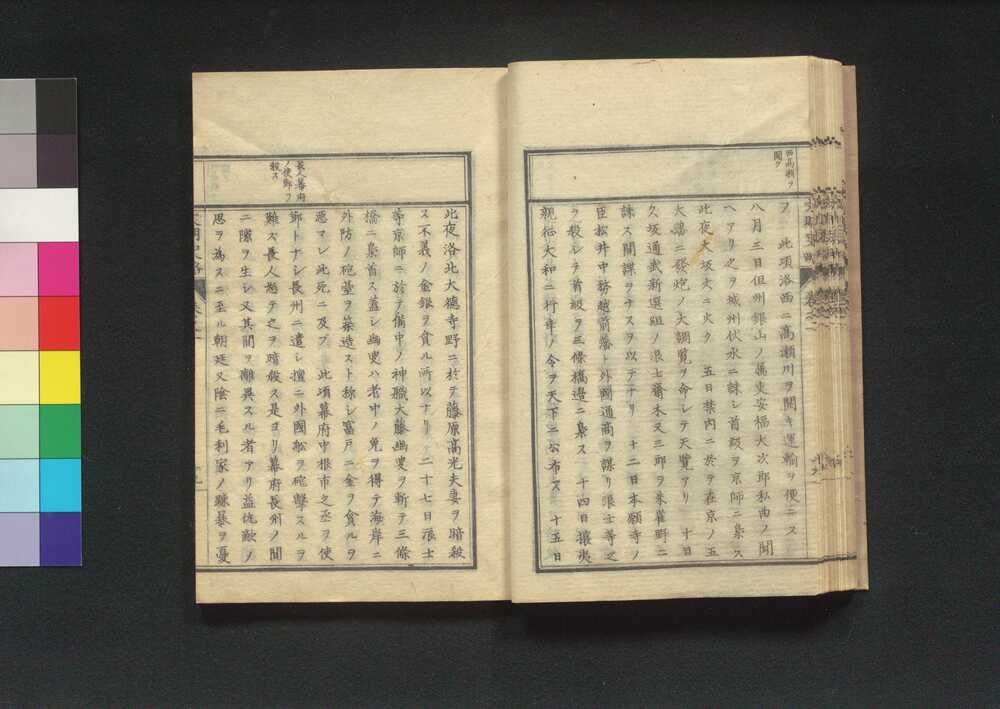 西高瀬ヲ
開ク
ヲ 此項洛西ニ高瀬川ヲ開キ運輸ヲ便ニス
八月三日但州銀山ノ属吏安福大次郎私曲ノ聞
ヘアリ之ヲ城州伏水ニ誅シ首級ヲ京師ニ梟ス
此夜大坂大ニ火ク 五日禁内ニ於テ在京ノ五
大諸ニ発炮ノ大調覧ヲ命シテ天覧アリ 十日
久坂通武新選組ノ浪士齋木又三郎ヲ朱雀野ニ
誅ス間諜ヲナスヲ以テナリ 十二日本願寺ノ
臣松井中務越前藩ト外國通商ヲ謀リ浪士等之
ヲ殺シテ首級ヲ三條橋邊ニ梟ス 十四日攘夷
親征大和ニ行幸ノ令ヲ天下ニ公布ス 十五日
長人幕府
ノ使節ヲ
殺ス
此夜洛北大德寺野ニ於テ藤原高光夫妻ヲ暗殺
ス不義ノ金銀ヲ貪ル所以ナリ 二十七日浪士
等京師ニ於テ備中ノ神職大藤幽叟ヲ斬テ三條
橋ニ梟首ス蓋シ幽叟ハ老中ノ免ヲ得テ海岸ニ
外防ノ砲臺ヲ築造スト称シ富戸ニ金ヲ貪ルヲ
悪マレ此死ニ及ブ 此項幕府中根市之丞ヲ使
節トナシ長州ニ遣シ擅ニ外國船ヲ砲撃スルヲ
難ス長人怒テ之ヲ暗殺ス是ヨリ幕府長州ノ間
ニ隙ヲ生シ又其間ヲ離異スル者アリ益仇敵ノ
思ヲ為スニ至ル朝廷又陰ニ毛利家ノ疎暴ヲ憂